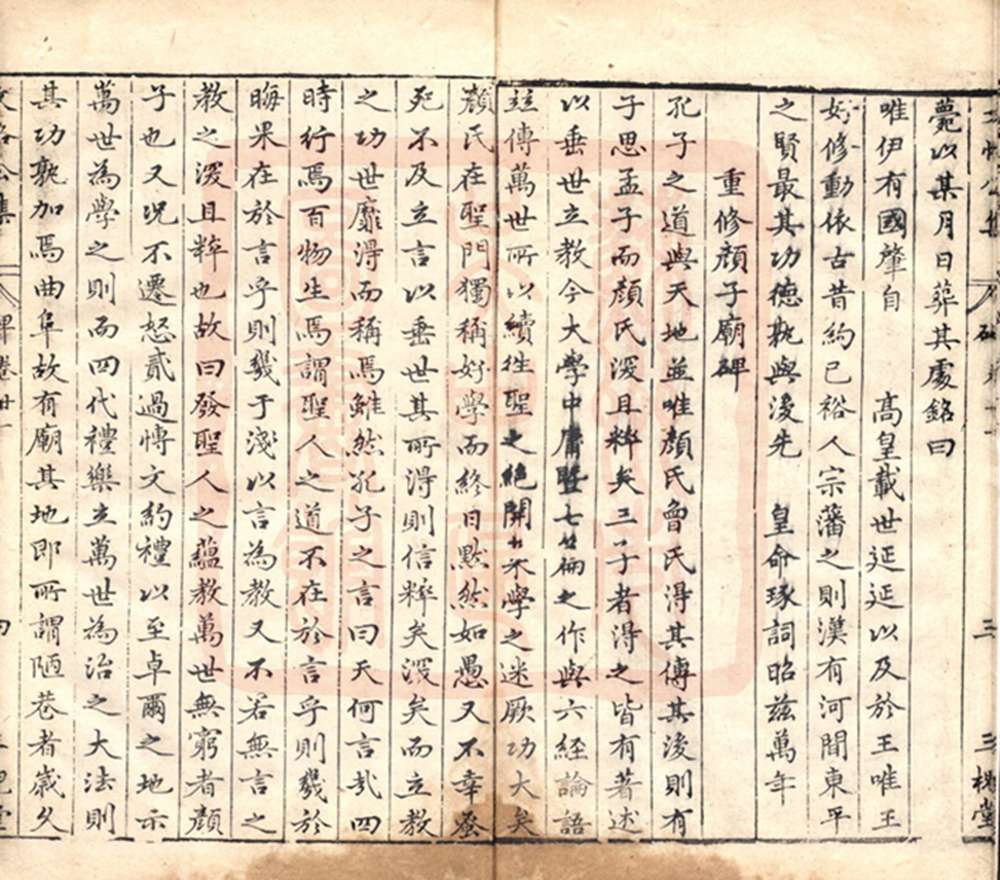 薨以某月日葬其處銘曰
唯伊有國肇自 高皇載世延延以及於王唯王
好修動依古昔約已裕人宗藩之則漢有河間東平
之賢最其功德孰與後先 皇命琢詞昭茲萬年
重修顏子廟碑
孔子之道與天地並唯顏氏曾氏淂其傳其後則有
子思孟子而顏氏深且粹矣三子者淂之皆有著述
以垂世立教今大學中庸暨七篇之作與六經論語
並傳萬世所以續徃聖之絕開來學之迷厥功大矣
顏氏在聖門獨稱好學而終日默然如愚又不幸蚤
死不及立言以垂世其所淂則信粹矣深矣而立教
之功世靡淂而稱焉雖然孔子之言曰天何言哉四
時行焉百物生焉謂聖人之道不在於言乎則幾於
晦果在於言乎則幾于淺以言為教又不若無言之
教之深且粹也故曰發聖人之蘊教萬世無窮者顏
子也又况不遷怒貳過愽文約禮以至卓爾之地示
萬世為學之則而四代禮樂立萬世為治之大法則
其功孰加焉曲阜故有廟其地即所謂陋巷者歲久